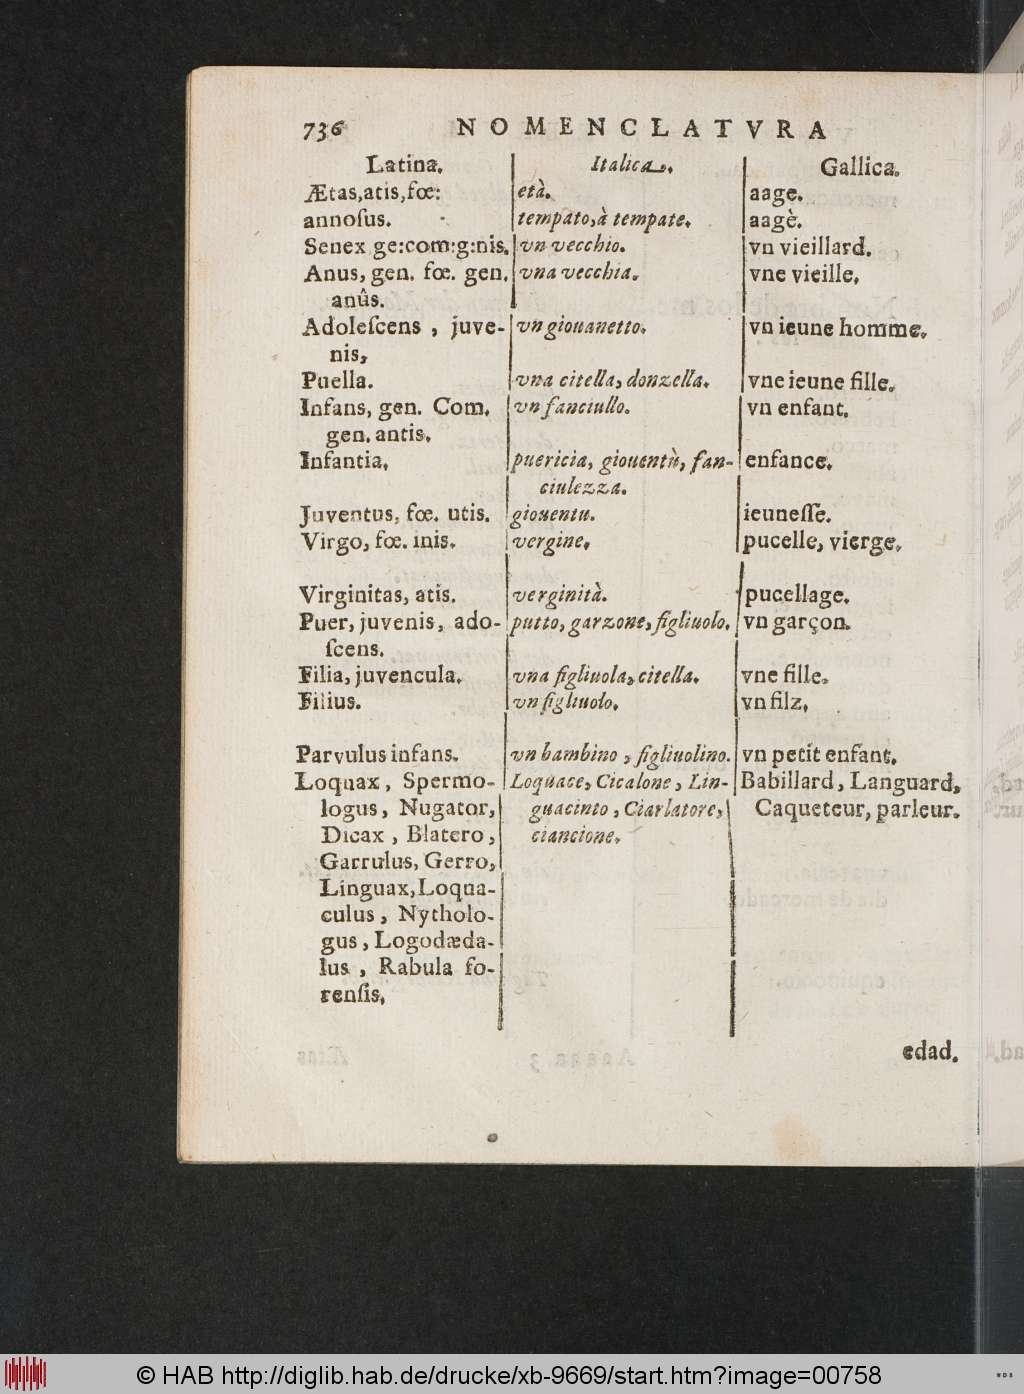 736 NOMENCLATVRA
Latina. Italica. Gallica.
Ætas,atis,fœ: età. aage.
annoſus. tempato,à tempate. aagè.
Senex ge:com:g:nis. vn vecchio. vn vieillard.
Anus, gen. fœ. gen. vna vecchia. vne vieille.
anûs.
Adoleſcens , juve- vn giouanetto. vn ieune homme.
nis,
Puella. vna citella, donzella. vne ieune fille.
Infans, gen. Com. vn fanciullo. vn enfant.
gen. antis.
Infantia. puericia, giouentù, fan- enfance.
ciulezza.
Juventus, fœ. utis. giouentu. ieuneſſe.
Virgo, fœ. inis. vergine. pucelle, vierge.
Virginitas, atis. verginità. pucellage.
Puer, juvenis, ado- putto, garzone, figliuolo. vn garçon.
ſcens.
Filia, juvencula. vna figliuola, citella. vne fille.
Filius. vn figliuolo. vn filz.
Parvulus infans. vn bambino , figliuolino. vn petit enfant.
Loquax , Spermo- Loquace, Cicalone , Lin- Babillard, Languard,
logus, Nugator, guacinto , Ciarlatore, Caqueteur, parleur.
Dicax , Blatero , ciancione.
Garrulus, Gerro,
Linguax, Loqua-
culus , Nytholo-
gus , Logodæda-
lus , Rabula fo-
renſis.
edad.
© HAB http://diglib.hab.de/drucke/xb-9669/start.htm?image=00758